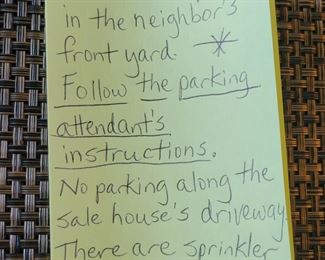 in the neighbor's
front yard.
Follow the parking
attendant's
instructions.
No parking along the
sale house's driveway.
There are sprinkler